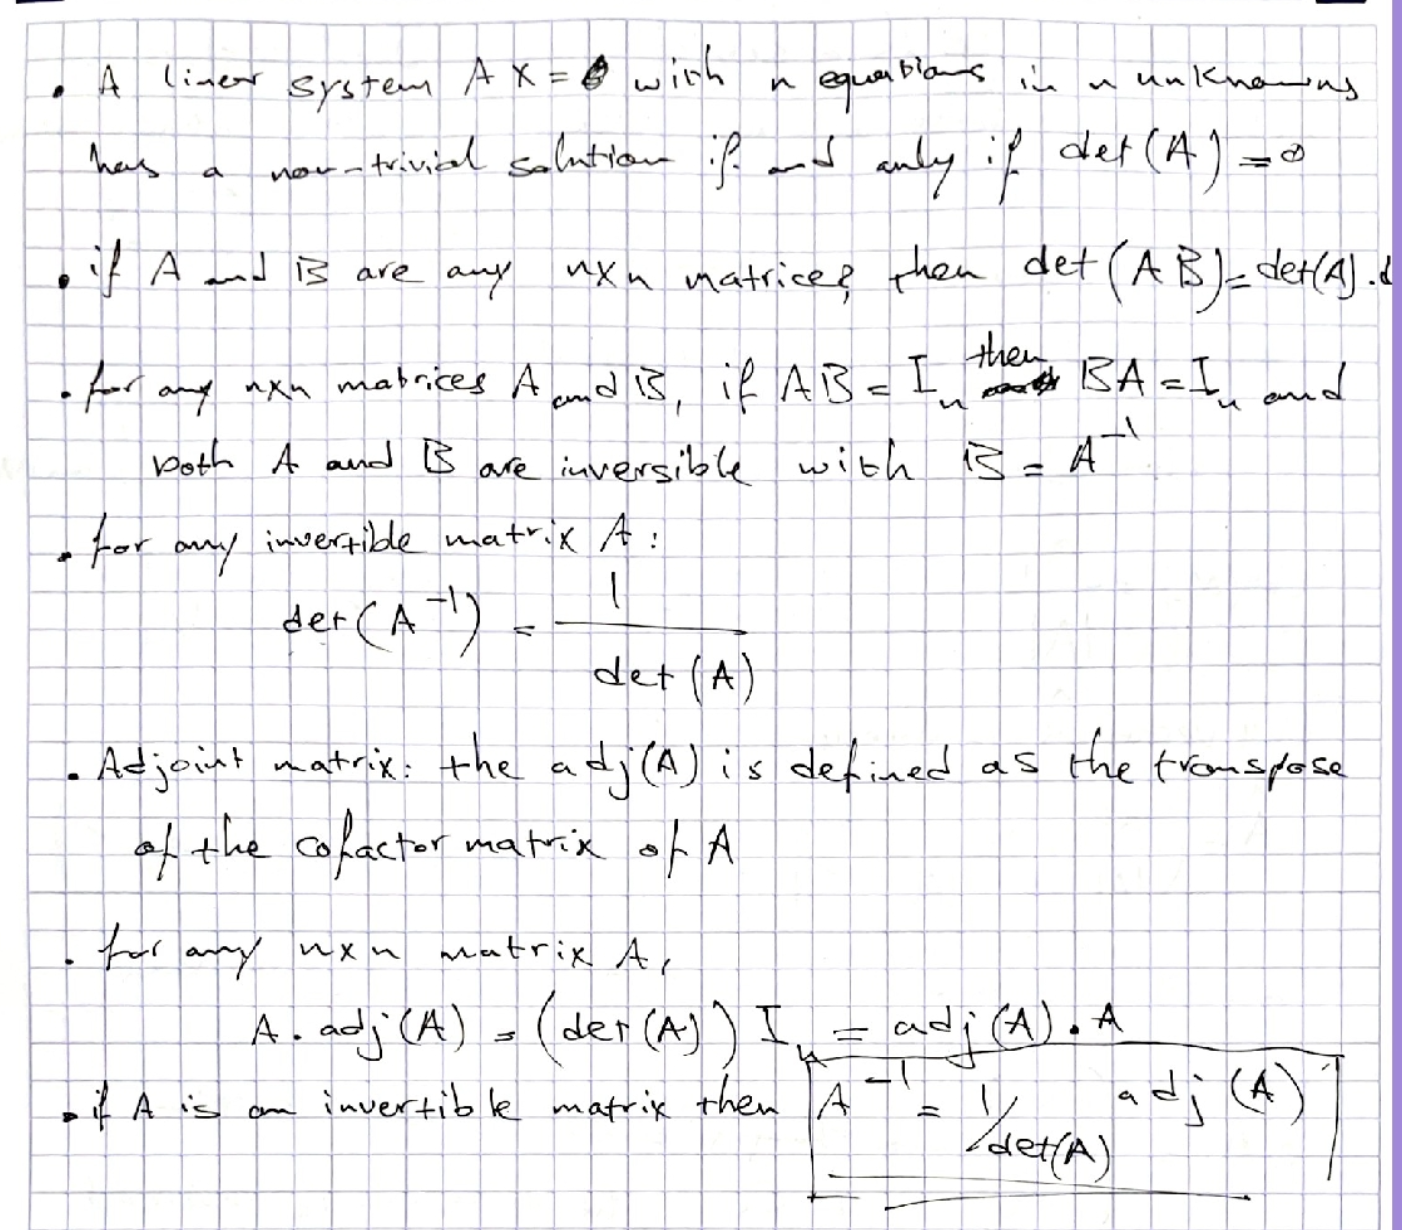 . A linear system AX = 0 with n equations in n unknowns
has a non-trivial solution if and only if det(A) = 0
. if A and B are any nxn matrices, then det(AB) = det(A).d
. for any nxn matrices A and B, if AB = Iₙ then BA = Iₙ and
both A and B are inversible with B = A⁻¹
. for any invertible matrix A :
det(A⁻¹) = 1 / det(A)
. Adjoint matrix: the adj(A) is defined as the transpose
of the cofactor matrix of A
. for any nxn matrix A,
A . adj(A) = (det(A)) Iₙ = adj(A) . A
. if A is an invertible matrix then A⁻¹ = 1/det(A) adj(A)